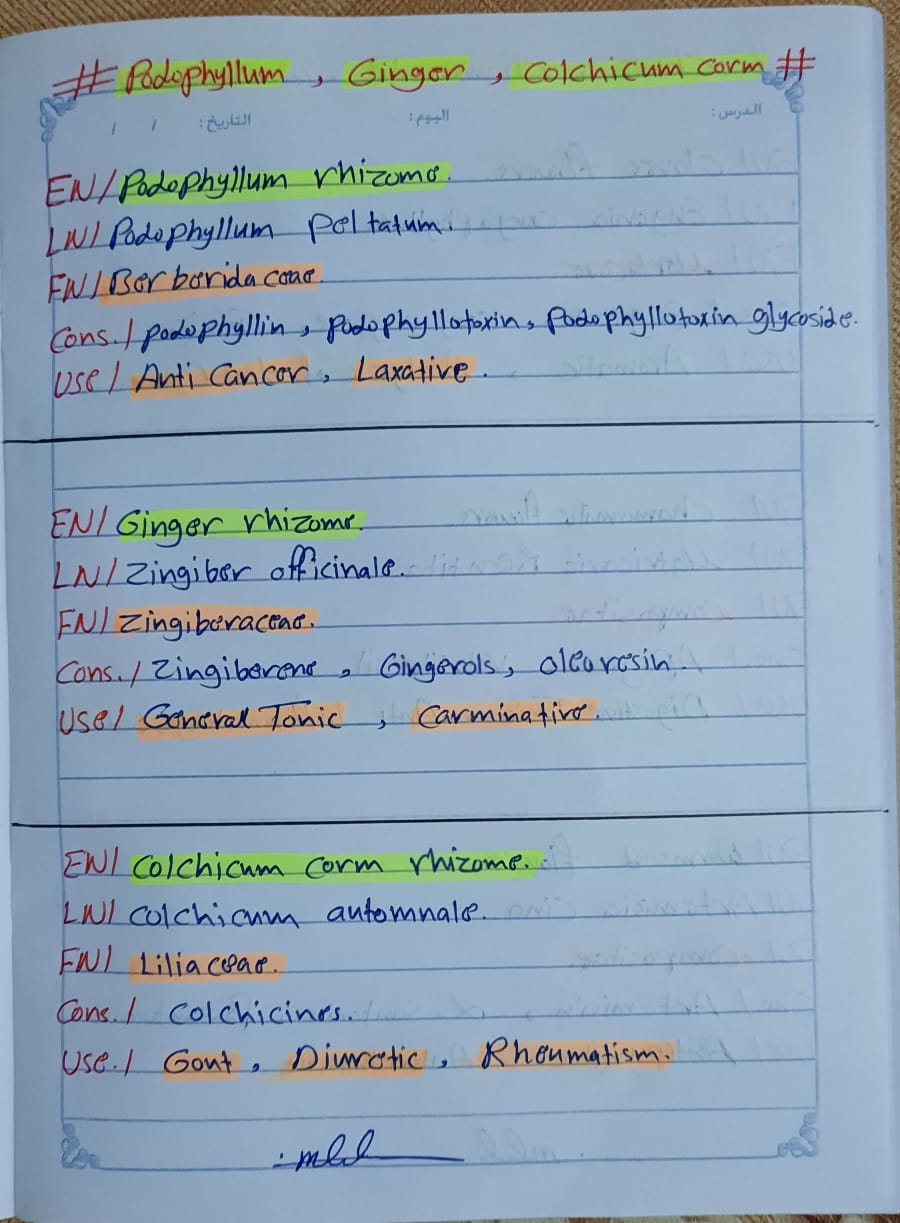 # Podophyllum , Ginger , Colchicum corm #
الدرس: اليوم: التاريخ: / /
EN/ Podophyllum rhizome.
LN/ Podophyllum peltatum.
FN/ Berberidaceae
Cons./ podophyllin, Podophyllotoxin, Podophyllotoxin glycoside.
Use/ Anti Cancer, Laxative.
EN/ Ginger rhizome.
LN/ Zingiber officinale.
FN/ Zingiberaceae.
Cons./ Zingiberene, Gingerols, oleoresin.
Use/ General Tonic, Carminative.
EN/ Colchicum Corm rhizome.
LN/ Colchicum automnale.
FN/ Liliaceae.
Cons./ Colchicines.
Use./ Gout, Diuretic, Rheumatism.